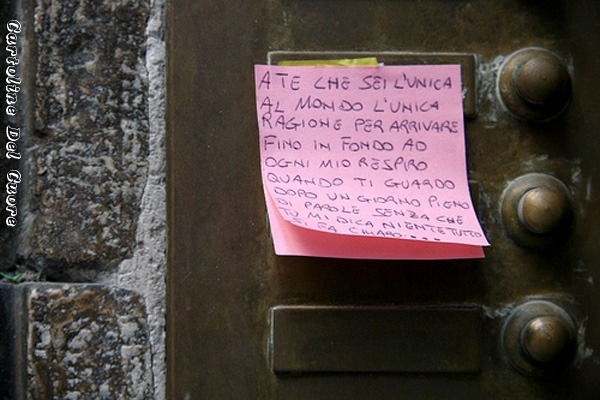 Cartoline Del Cuore
A TE CHE SEI L'UNICA
AL MONDO L'UNICA
RAGIONE PER ARRIVARE
FINO IN FONDO AD
OGNI MIO RESPIRO
QUANDO TI GUARDO
DOPO UN GIORNO PIENO
DI PAROLE SENZA CHE
TU MI DICA NIENTE TUTTO
SI FA CHIARO....